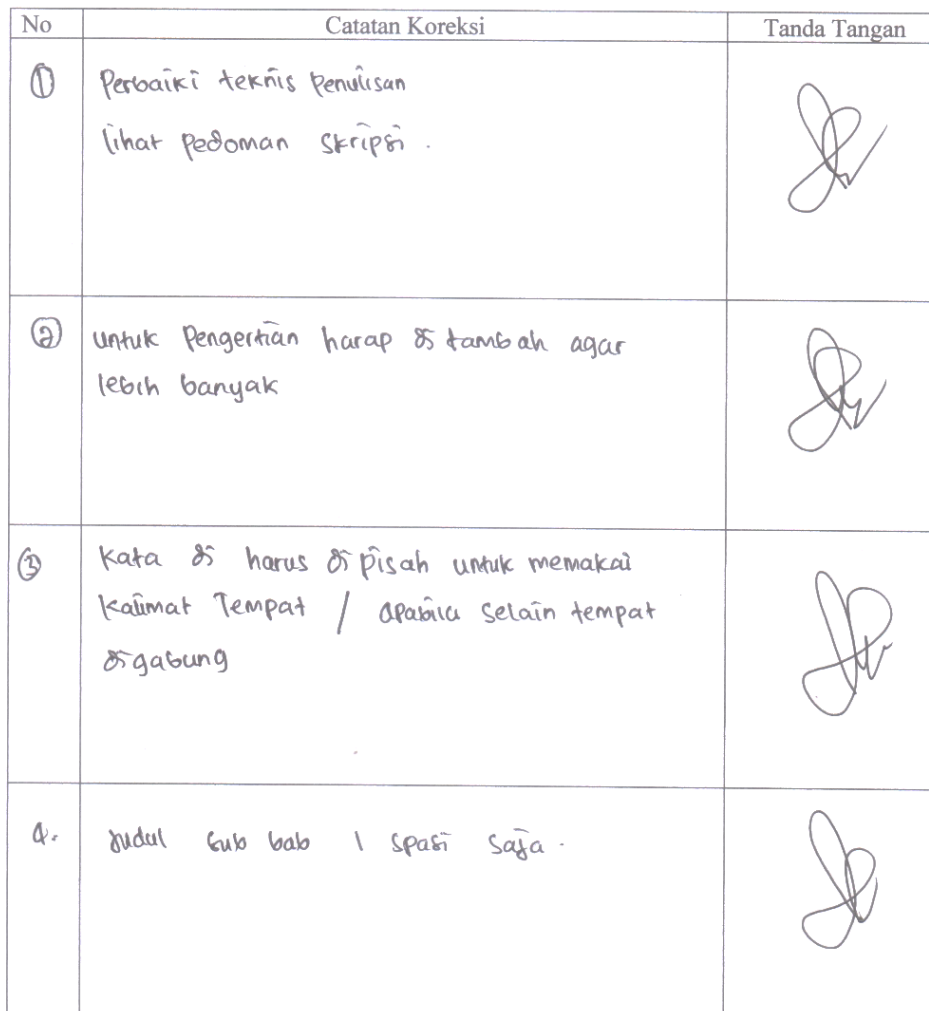 No Catatan Koreksi Tanda Tangan
① Perbaiki teknis Penulisan
lihat Pedoman skripsi .
② untuk Pengertian harap di tambah agar
lebih banyak
③ Kata di harus di pisah untuk memakai
Kalimat Tempat / apabila selain tempat
digabung
4. Judul sub bab 1 spasi saja .